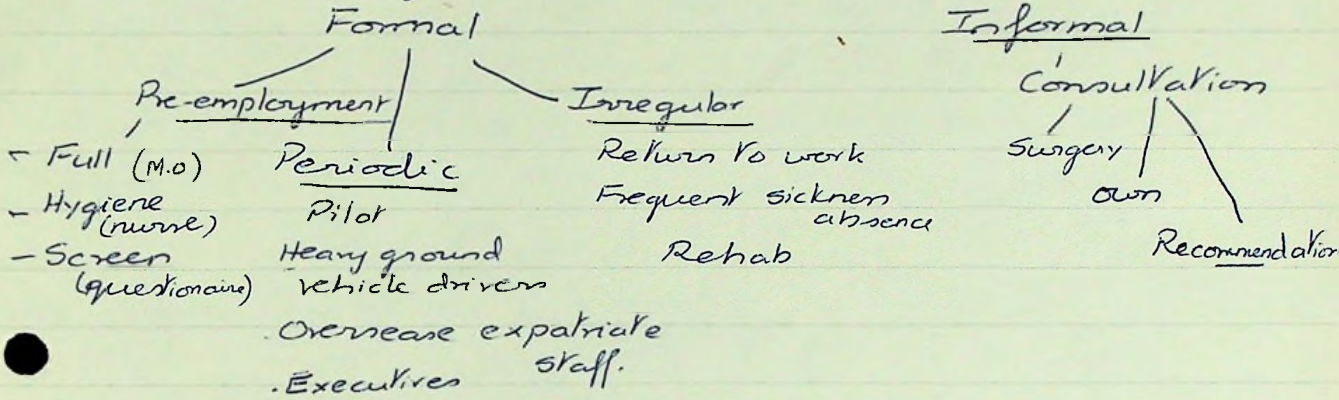 Formal
Pre-employment
- Full (M.O)
- Hygiene
(nurse)
- Screen
(questionaire)
Periodic
Pilot
Heavy ground
vehicle drivers
. Oversease expatriate
staff.
. Executives
Irregular
Return to work
Frequent sickness
absence
Rehab
Informal
Consultation
Surgery
own
Recommendation